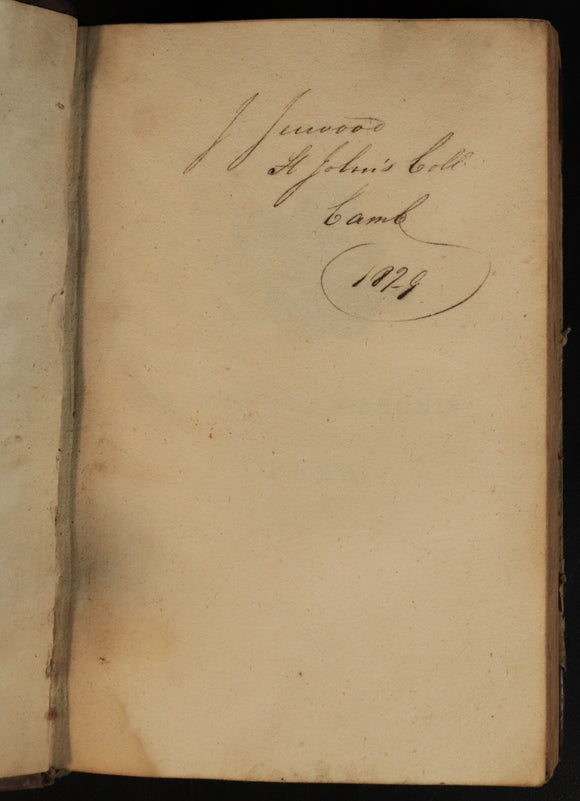 J Inwood
St John's Coll
Camb
1829